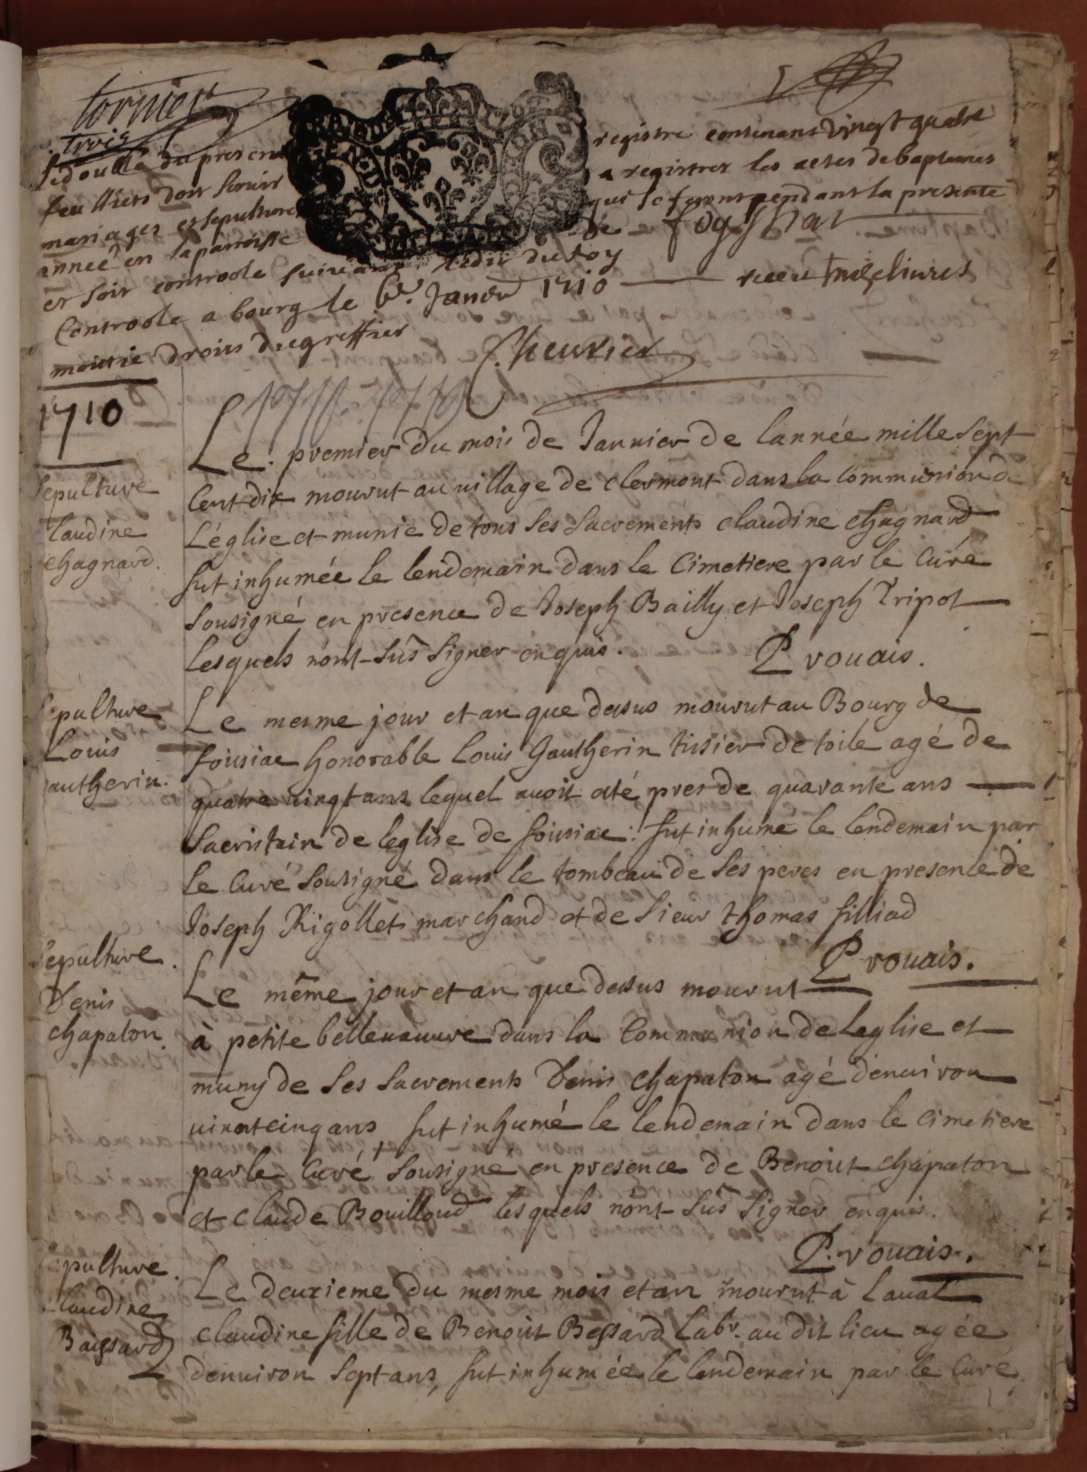 trois
Le double du present registre contenans vingt quatre
feuillets doit servir a registrer les actes de baptemes
mariages et sepultures qui se feront pendant la presente
année en la paroisse de
et soit controole suivant l'edit du roy
Controole a bourg le 6e. Janvr 1710 receu trois livres
moitie droits du greffier
Cheurier
1710
Le premier du mois de Januier de l'année mille sept
Cent dix mourut au uillage de clermont dans la Communion de
L'église et munie de tous ses sacrements claudine chagnard
fut inhumée le lendemain dans le Cimetiere par le Curé
sousigné en presence de Joseph Bailly et Joseph Tripot
Lesquels n'ont sûs signer enquis.
P vouais.
sepulture
Claudine
chagnard.
Le mesme jour et an que dessus mourut au Bourg de
foissiac honorable Louis Gautherin tissier de toile agé de
quatre uingt ans lequel auoit eté pres de quarante ans
Sacristain de leglise de foissiac: fut inhumé le lendemain par
le Curé sousigné dans le tombeau de ses peres en presence de
Joseph Rigollet marchand et de sieur thomas filliod
P vouais.
sepulture
Louis
Gautherin.
Le même jour et an que dessus mourut
à petite belleuauure dans la Communion de Leglise et
muny de ses sacrements Denis chapaton agé denuiron
uint cinq ans fut inhumé le lendemain dans le cimetiere
par le Curé sousigné en presence de Benoist chapaton
et claude Bouilloud lesquels n'ont sûs signer enquis.
P. vouais.
sepulture.
Denis
chapaton.
Le deuxieme du mesme mois et an mourut à Laual
claudine fille de Benoit Bessard Labr. au dit lieu agée
denuiron sept ans, fut inhumée le lendemain par le Curé
sepulture.
Claudine
Baissard